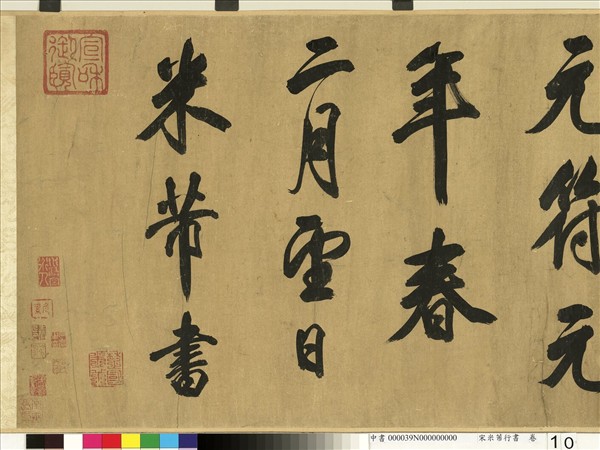 元符元
年春
二月望日
米芾書
中書 000039N000000000 宋米芾行書 卷 10